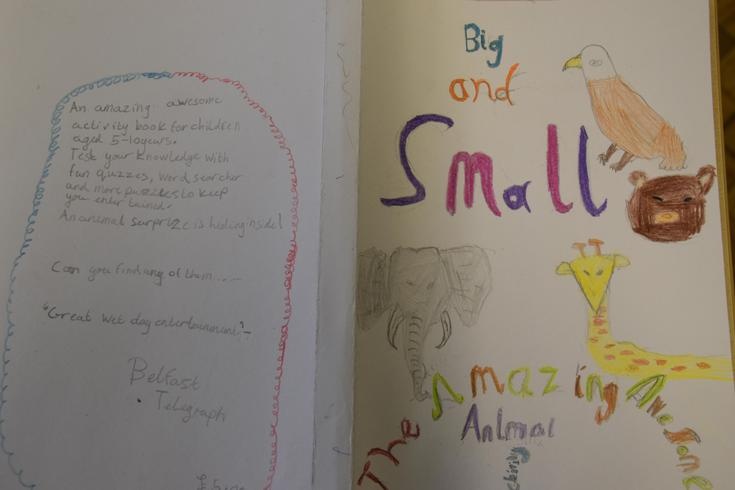 An amazing awesome
activity book for children
aged 5-10years.
Test your knowledge with
fun quizzes, word searcher
and more puzzles to keep
you entertained.
An animal surprize is hiding inside!
Can you find any of them.....
"Great wet day entertainment"-
Belfast
Telegraph
Big
and
Small
The Amazing Awesome
Animal